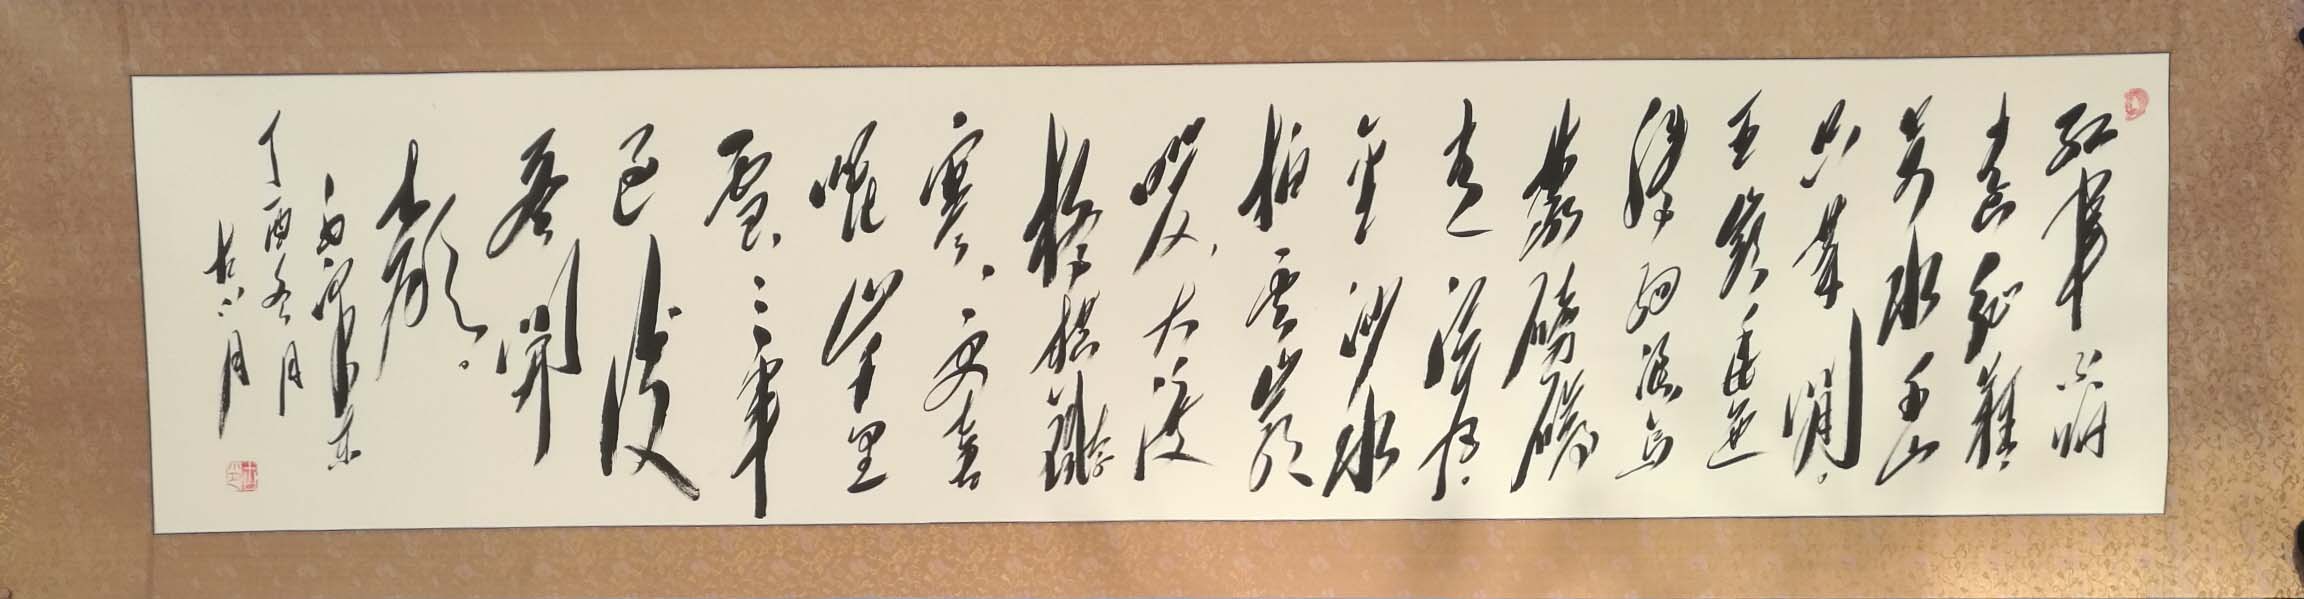 红军不怕
远征難。
万水千山
只等闲。
五岭逶迤
腾细浪，乌
蒙磅礴
走泥丸。
金沙水
拍云崖
暖，大渡
桥横铁索
寒。更喜
岷山千里
雪，三军
过后
尽开
颜。
毛泽东
丁酉冬月